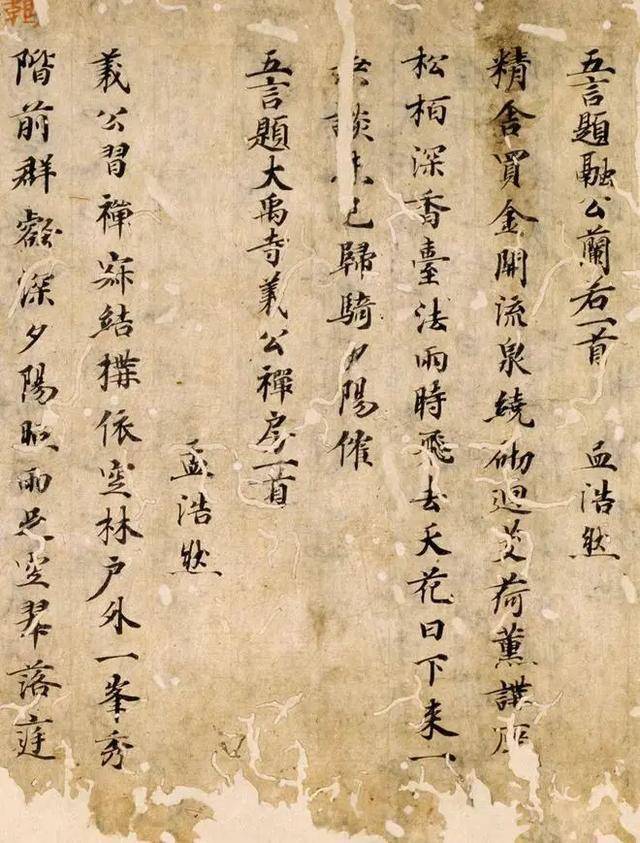 五言題融公蘭若一首 孟浩然
精舍買金開流泉繞砌迴芰荷薰講座
松柏深香臺法雨時飛去天花日下来一
談未已歸騎夕陽催
五言題大禹寺義公禪房一首
孟浩然
義公習禪寂結構依空林户外一峯秀
階前群壑深夕陽照雨足空翠落庭